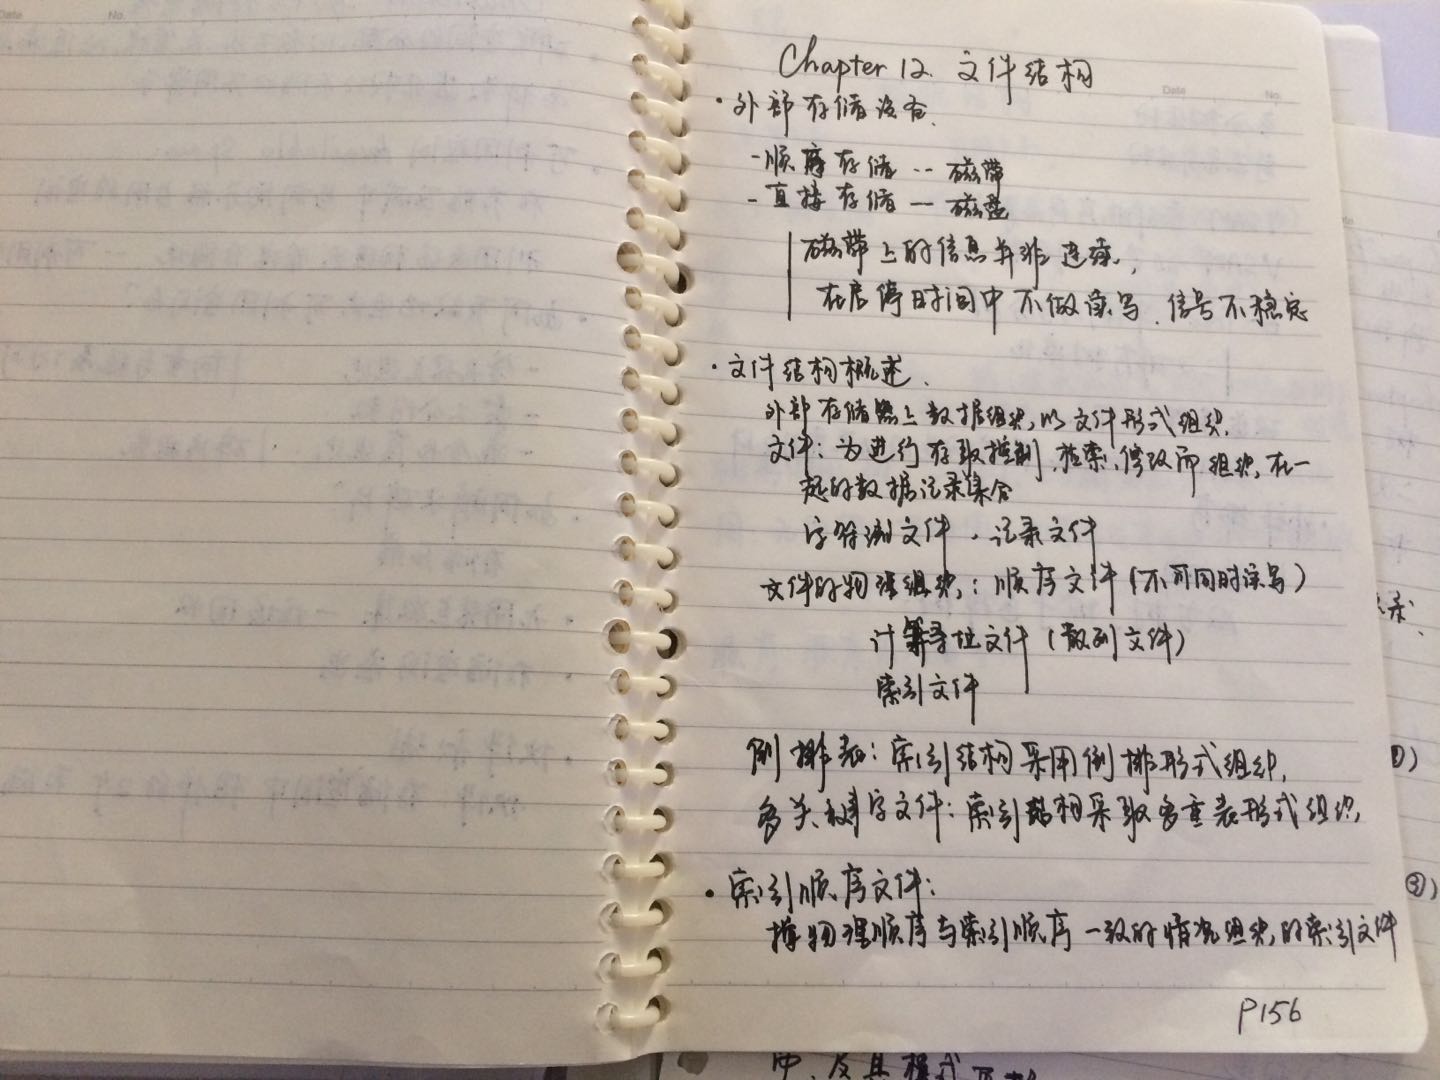 Chapter 12. 文件结构
· 外部存储设备.
- 顺序存储 -- 磁带
- 直接存储 — 磁盘
磁带上的信息并非连续,
在启停时间中不做读写, 信号不稳定
· 文件结构概述.
外部存储器上数据组织, 以文件形式组织.
文件: 为进行存取控制、检索、修改而组织在一
起的数据记录集合
字符流文件 . 记录文件
文件的物理组织: 顺序文件 (不可同时读写)
计算寻址文件 (散列文件)
索引文件
倒排表: 索引结构采用倒排形式组织.
多关键字文件: 索引结构采取多重表形式组织,
· 索引顺序文件:
按物理顺序与索引顺序一致的情况组织的索引文件
P156
Date
No.
Date
No.
录.
③)
中, 及其模式